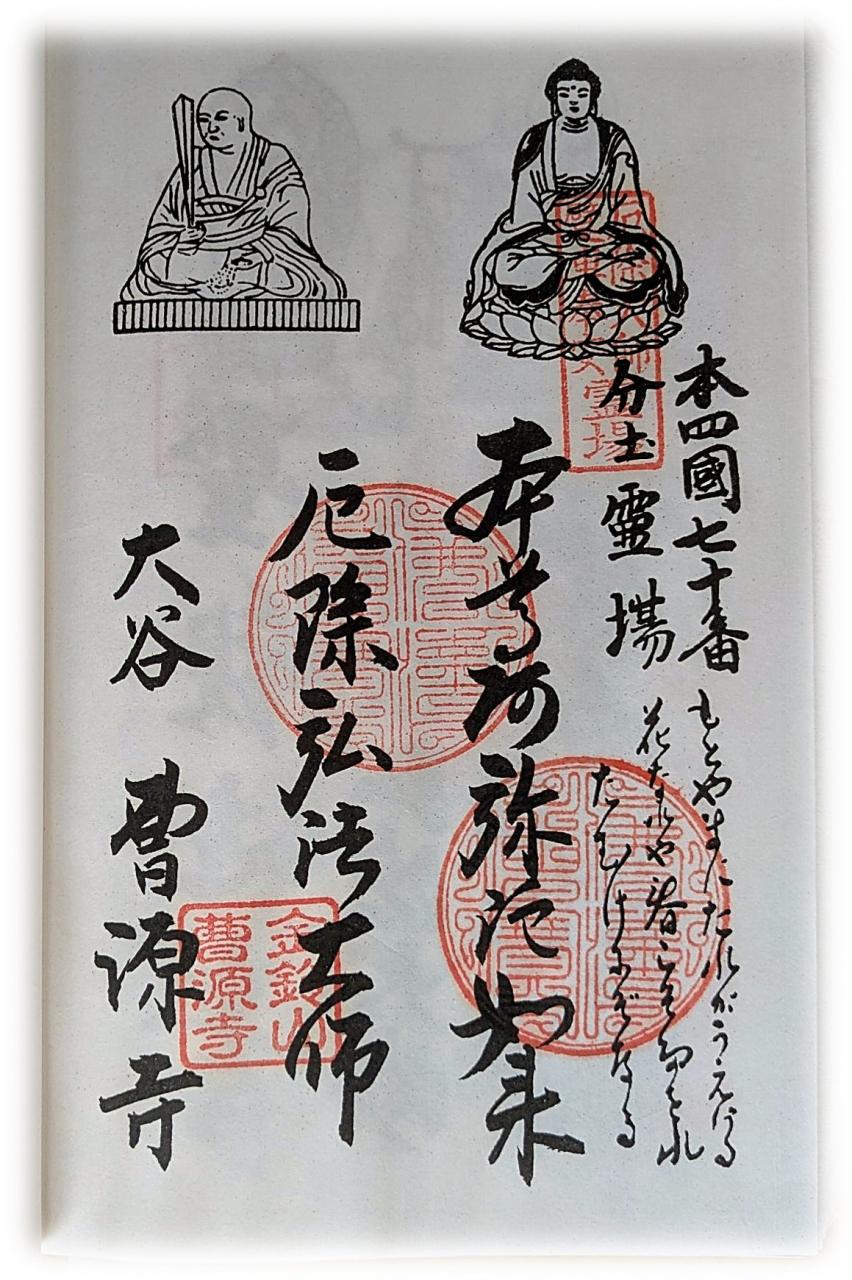 本四國七十番
分土靈場
もとやまにたれがうえける
花なれや春こそたをれ
たむけにぞなる
本尊阿弥陀如来
厄除弘法大師
大谷 曹源寺
金鈴山
曹源寺